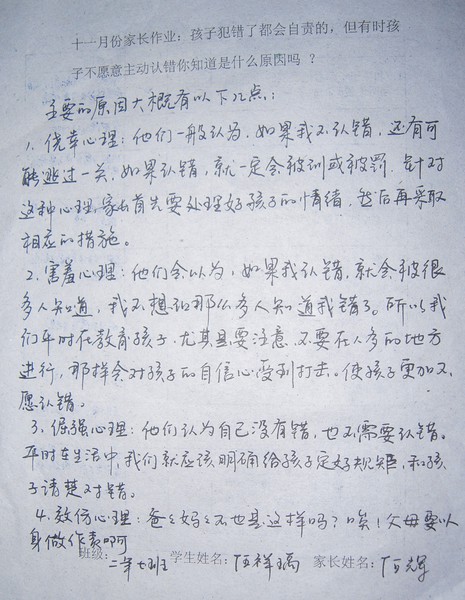 十一月份家长作业：孩子犯错了都会自责的，但有时孩
子不愿意主动认错你知道是什么原因吗 ？
主要的原因大概有以下几点：
1、侥幸心理：他们一般认为，如果我不认错，还有可
能逃过一关，如果认错，就一定会被训或被罚。针对
这种心理，家长首先要处理好孩子的情绪，然后再采取
相应的措施。
2、害羞心理：他们会以为，如果我认错，就会被很
多人知道，我不想让那么多人知道我错了。所以我
们平时在教育孩子，尤其是要注意，不要在人多的地方
进行，那样会对孩子的自信心受到打击，使孩子更加不
愿认错。
3、倔强心理：他们认为自己没有错，也不需要认错。
平时在生活中，我们就应该明确给孩子定好规矩，和孩
子清楚对错。
4、效仿心理：爸爸妈妈不也是这样吗？唉！父母要以
身做作责啊
班级：二年七班 学生姓名：伍祥瑞 家长姓名：伍